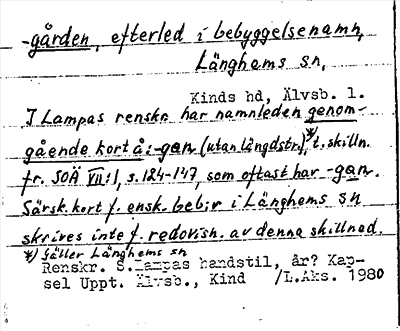 -gården, efterled i bebyggelsenamn,
Länghems sn,
Kinds hd, Älvsb. l.
I Lampas renskr. har namnleden genom-
gående kort å:-gan (utan längdstr.),*) t. skilln.
fr. SOÄ VII:1, s.124-147, som oftast har -gan.
Särsk. kort f. ensk. beb:r i Länghems sn
skrives inte f. redovisn. av denna skillnad.
*) Gäller Länghems sn
Renskr. S.Lampas handstil, år? Kap-
sel Uppt. Älvsb., Kind /L.Aks. 1980